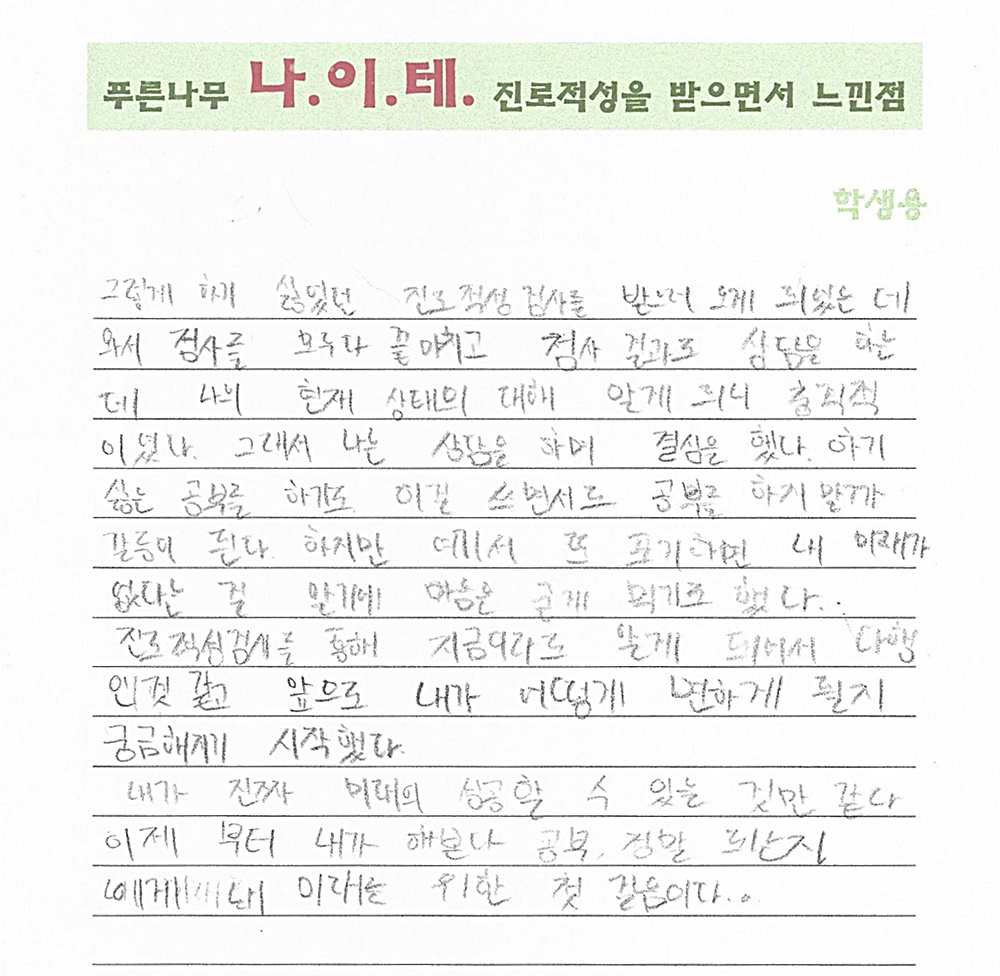 푸른나무 나.이.테. 진로적성을 받으면서 느낀점
학생용
그렇게 하기 싫었던 진로적성검사를 받으러 오게 되었은데
와서 검사를 모두다 끝마치고 검사 결과로 상담을 하는
데 나의 현재 상태의 대해 알게 되니 충격적
이었다. 그래서 나는 상담을 하며 결심을 했다. 하기
싫은 공부를 하기로 이걸 쓰면서도 공부를 하지 말까
갈등이 된다. 하지만 여기서 또 포기하면 내 미래가
없다는 걸 알기에 마음은 굳게 먹기로 했다..
진로적성검사를 통해 지금이라도 알게 되어서 다행
인것 같고 앞으로 내가 어떻게 변하게 될지
궁금해지기 시작했다.
내가 진짜 미래의 성공할 수 있는 것만 같다
이제 부터 내가 해본다 공부. 정말 되는지
내 미래를 위한 첫 걸음이다..